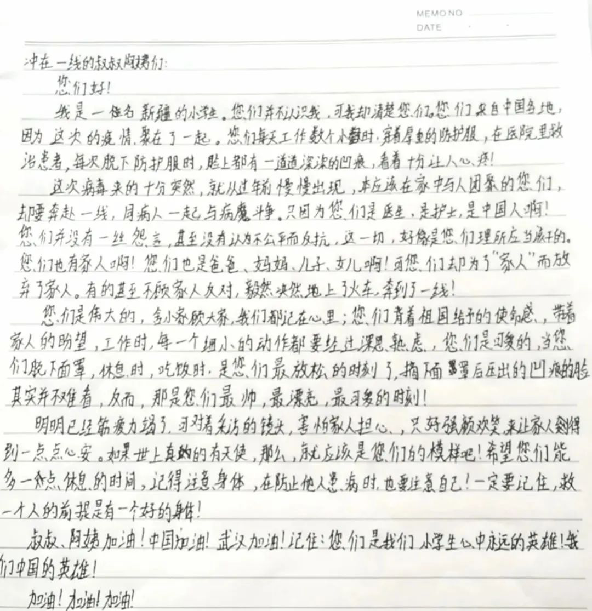 MEMO NO
DATE
冲在一线的叔叔阿姨们:
您们好!
我是一位名新疆的小学生。您们并不认识我,可我却清楚您们。您们来自中国各地,
因为这次的疫情,聚在了一起。您们每天工作数个小时,穿着厚重的防护服,在医院里救
治患者,每次脱下防护服时,脸上都有一道道深深的凹痕,看着十分让人心疼!
这次病毒来的十分突然,就从过年前慢慢出现,本应该在家中与人团聚的您们,
却要奔赴一线,同病人一起与病魔斗争。只因为您们是医生,是护士,是中国人啊!
您们并没有一丝怨言,甚至没有认为不公平而反抗,这一切,好像是您们理所应当干的。
您们也有家人啊!您们也是爸爸、妈妈、儿子、女儿啊!可您们却为了“家人”而放
弃了家人。有的甚至不顾家人反对,毅然决然地上了火车,奔到了一线!
您们是伟大的,舍小家顾大家,我们都记在心里;您们背着祖国给予的使命感,带着
家人的盼望,工作时,每一个细小的动作都要经过深思熟虑,您们是可爱的,当您
们脱下面罩,休息时,吃饭时,是您们最放松的时刻了,摘下面罩后压出的凹痕的脸
其实并不难看,反而,那是您们最帅,最漂亮,最可爱的时刻!
明明已经筋疲力竭了,可对着采访的镜头,害怕家人担心,只好强颜欢笑,来让家人得
到一点点心安。如果世上真的有天使,那么,就应该是您们的模样吧!希望您们能
多一点休息的时间,记得注意身体,在防止他人患病时,也要注意自己!一定要记住,救
一个人的前提是有一个好的身体!
叔叔、阿姨加油!中国加油!武汉加油!记住:您们是我们小学生心中永远的英雄!我
们中国的英雄!
加油!加油!加油!